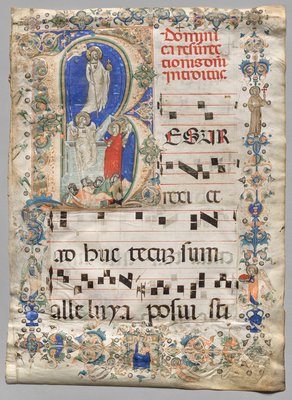 Domini
ca resurre
ctionis dom
introitus
RESUR
rexi et
ad huc tecuz sum
alle luya posui sti